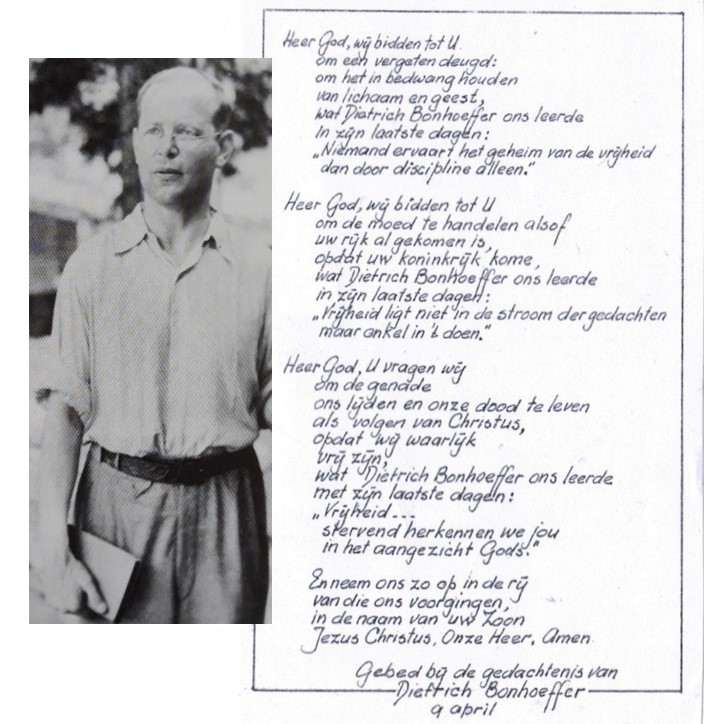 Heer God, wij bidden tot U
om een vergeten deugd:
om het in bedwang houden
van lichaam en geest,
wat Dietrich Bonhoeffer ons leerde
in zijn laatste dagen:
„Niemand ervaart het geheim van de vrijheid
dan door discipline alleen."
Heer God, wij bidden tot U
om de moed te handelen alsof
uw rijk al gekomen is,
opdat uw koninkrijk kome,
wat Dietrich Bonhoeffer ons leerde
in zijn laatste dagen:
„Vrijheid ligt niet in de stroom der gedachten
maar enkel in 't doen."
Heer God, U vragen wij
om de genade
ons lijden en onze dood te leven
als volgen van Christus,
opdat wij waarlijk
vrij zijn,
wat Dietrich Bonhoeffer ons leerde
met zijn laatste dagen:
„Vrijheid ---
stervend herkennen we jou
in het aangezicht Gods."
En neem ons zo op in de rij
van die ons voorgingen,
in de naam van uw Zoon
Jezus Christus, Onze Heer. Amen
Gebed bij de gedachtenis van
Dietrich Bonhoeffer
9 april